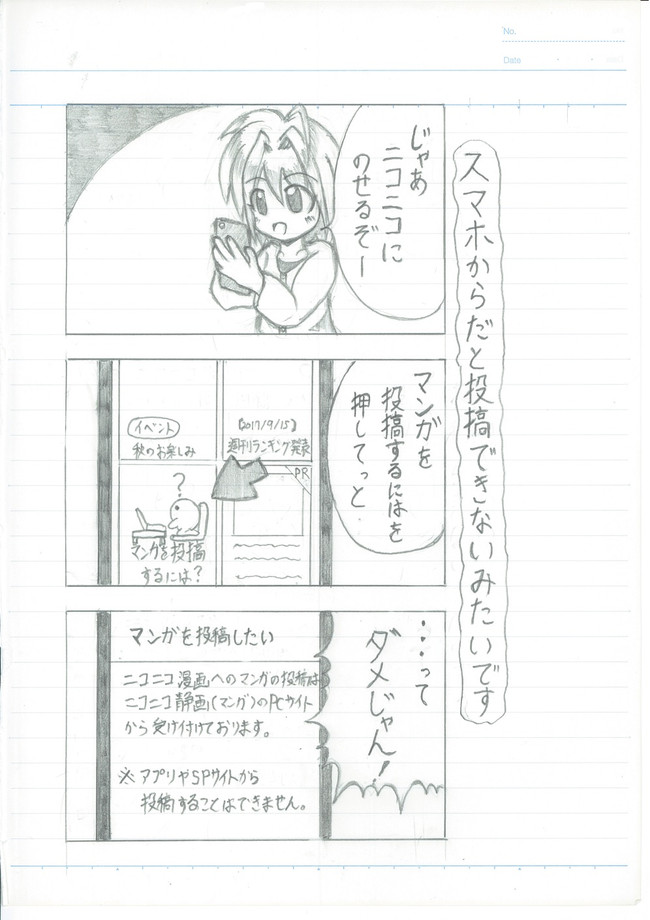 No.
Date
スマホからだと投稿できないみたいです
じゃあ
ニコニコに
のせるぞー
マンガを
投稿するにはを
押してっと
イベント
秋のお楽しみ
【2017/9/15】
週刊ランキング発表
PR
?
マンガを投稿
するには?
・・・って
ダメじゃん!
マンガを投稿したい
ニコニコ漫画へのマンガの投稿は
ニコニコ静画(マンガ)のPCサイト
から受け付けております。
※アプリやSPサイトから
投稿することはできません。